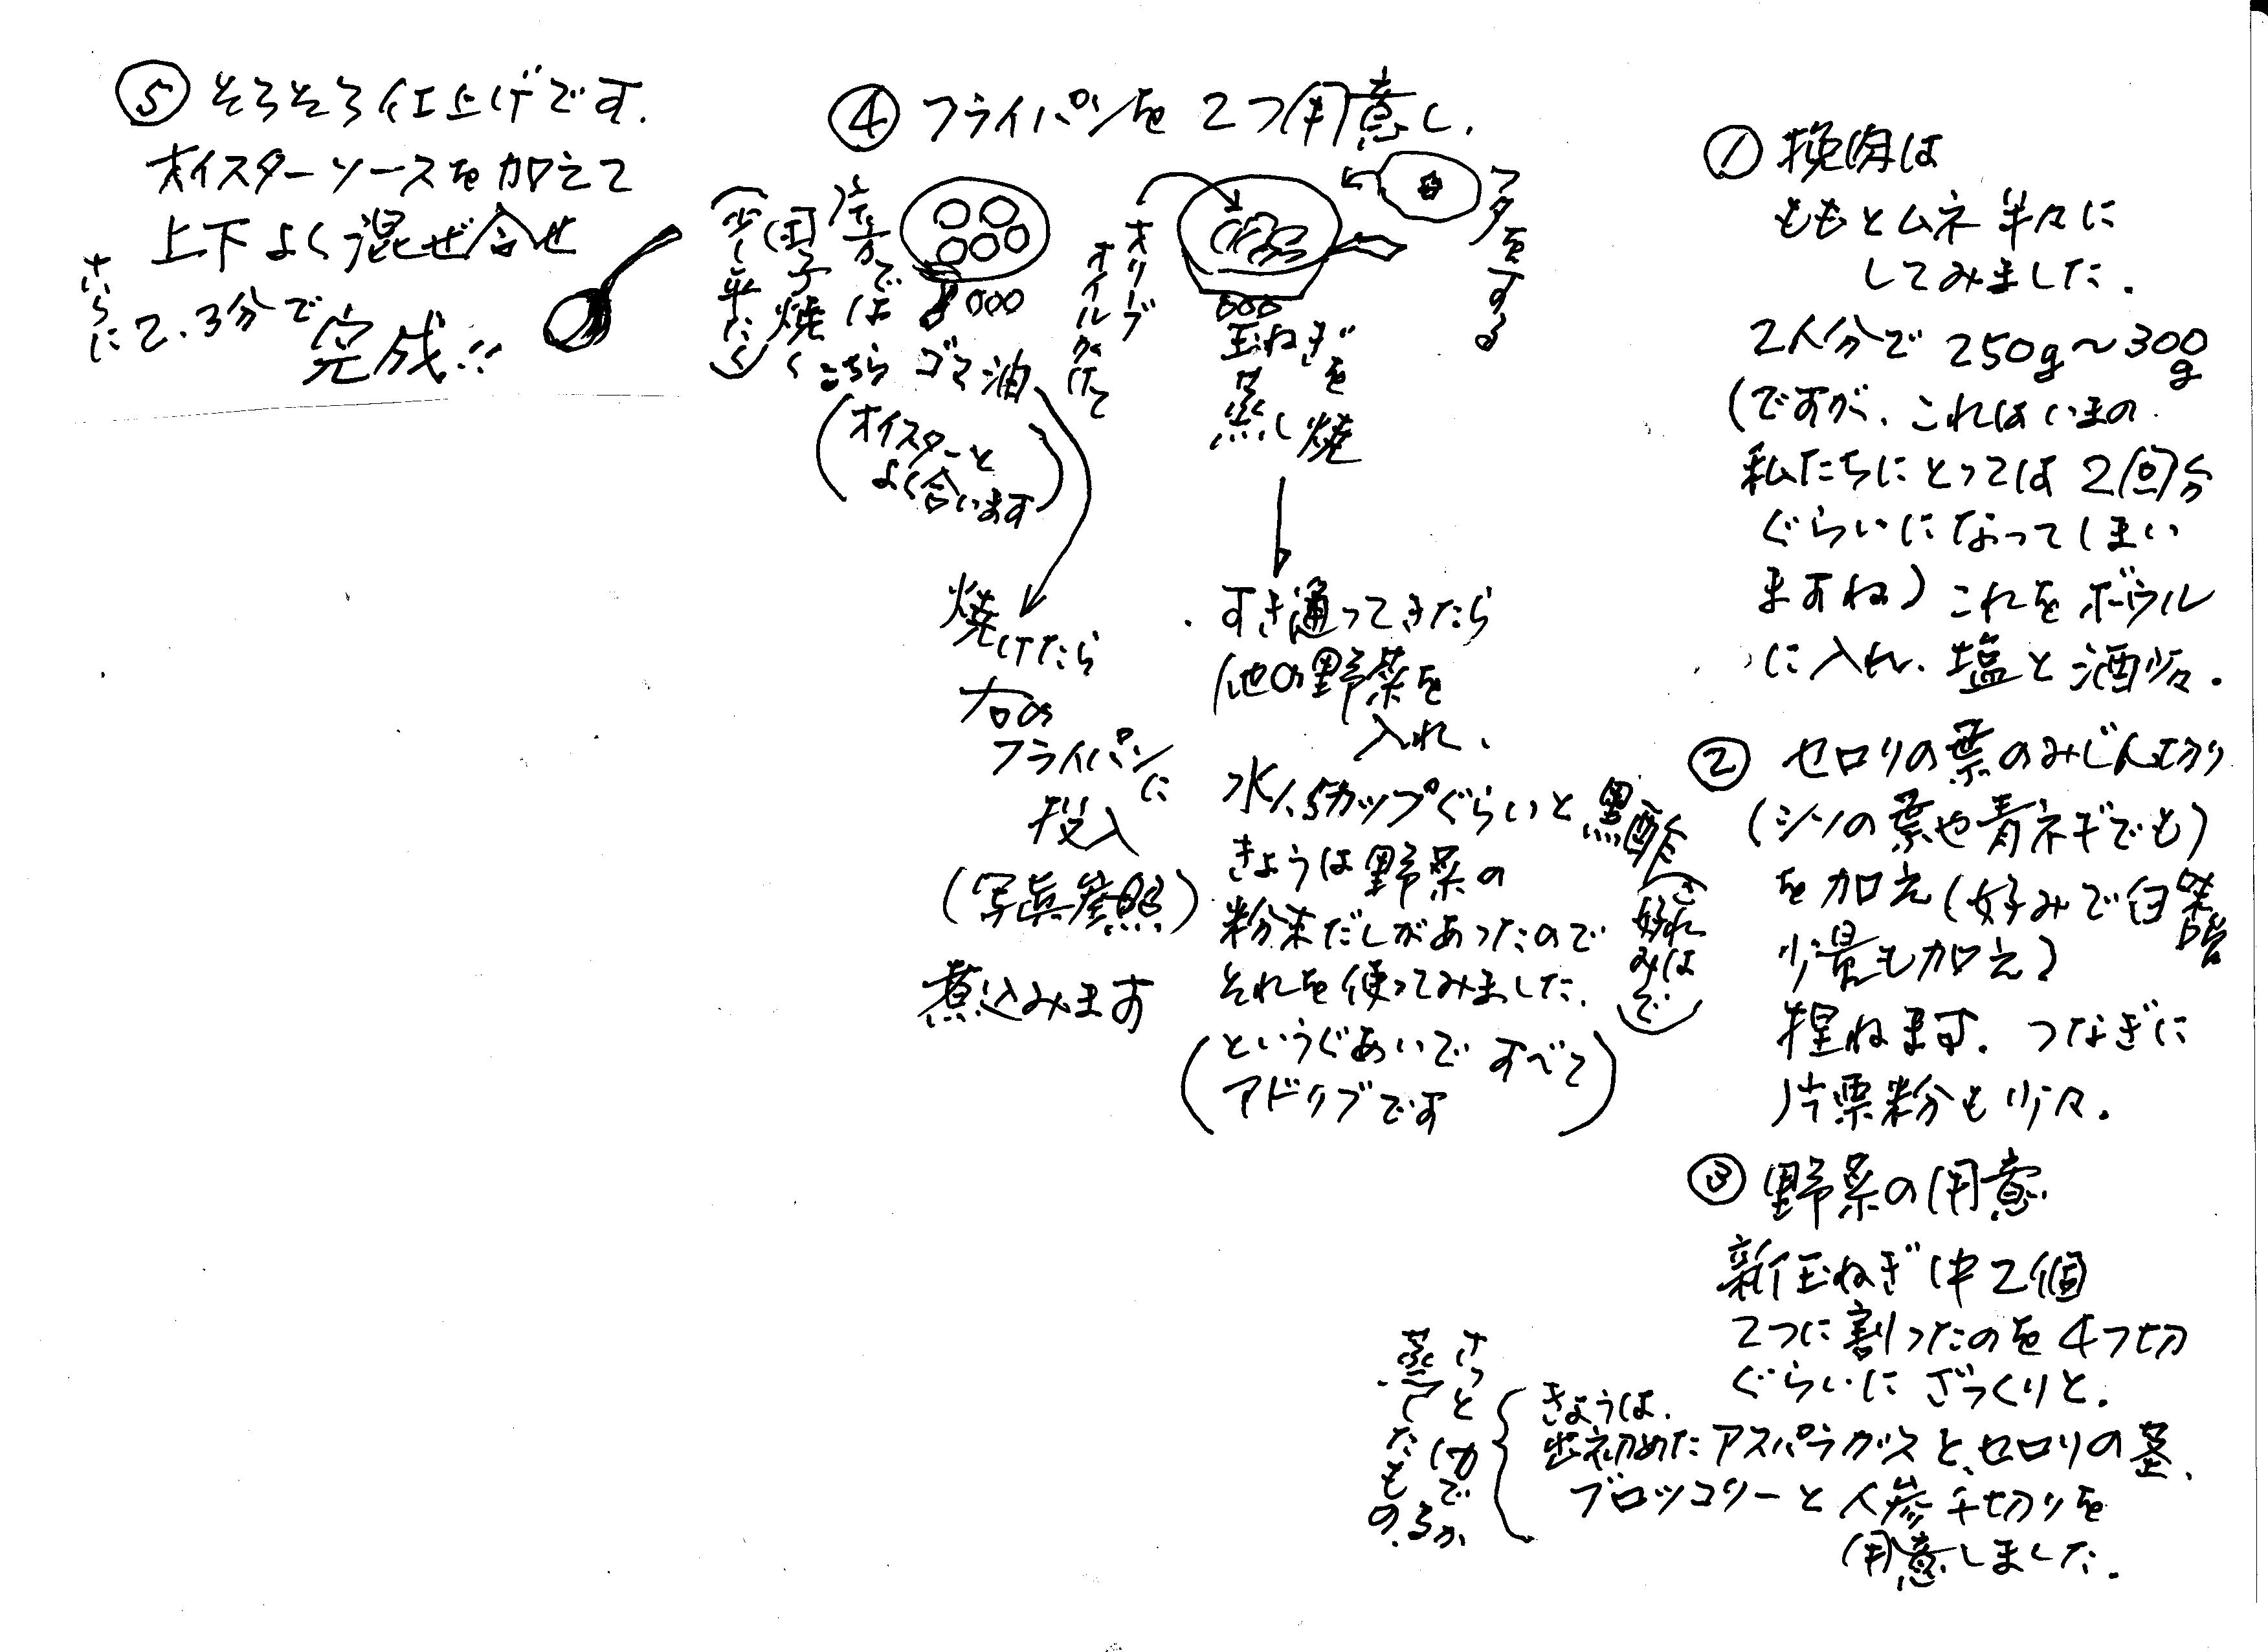 ① 挽肉は
ももとムネ半々に
してみました.
2人分で250g〜300g
(ですが、これはいまの
私たちにとっては2回分
ぐらいになってしまい
ますね)これをボウル
に入れ、塩と酒少々.
② セロリの葉のみじん切り
(シソの葉や青ネギでも)
を加え(好みで白味噌
少量も加え)
捏ねます. つなぎに
片栗粉も少々.
③ 野菜の用意
新玉ねぎ中2個
2つに割ったのを4つ切
ぐらいにざっくりと.
きょうは、
出初めたアスパラガスと、セロリの茎、
ブロッコリーと人参千切りを
用意しました.
さっとゆでるか
蒸したもの.
④ フライパンを2つ用意し、
フタをする
オリーブ
オイルかけて
玉ねぎを
蒸し焼
すき通ってきたら
他の野菜を
入れ、
水1.5カップぐらいと黒酢
(これは
好みで)
きょうは野菜の
粉末だしがあったので
それを使ってみました.
(というぐあいですべて
アドリブです)
片方では
団子焼く
(少し平たく)
こちらゴマ油
(オイスターと
よく合います)
焼けたら
右の
フライパンに
投入
(写真参照)
煮込みます
⑤ そろそろ仕上げです.
オイスターソースを加えて
上下よく混ぜ合せ
さらに2、3分で
完成!!